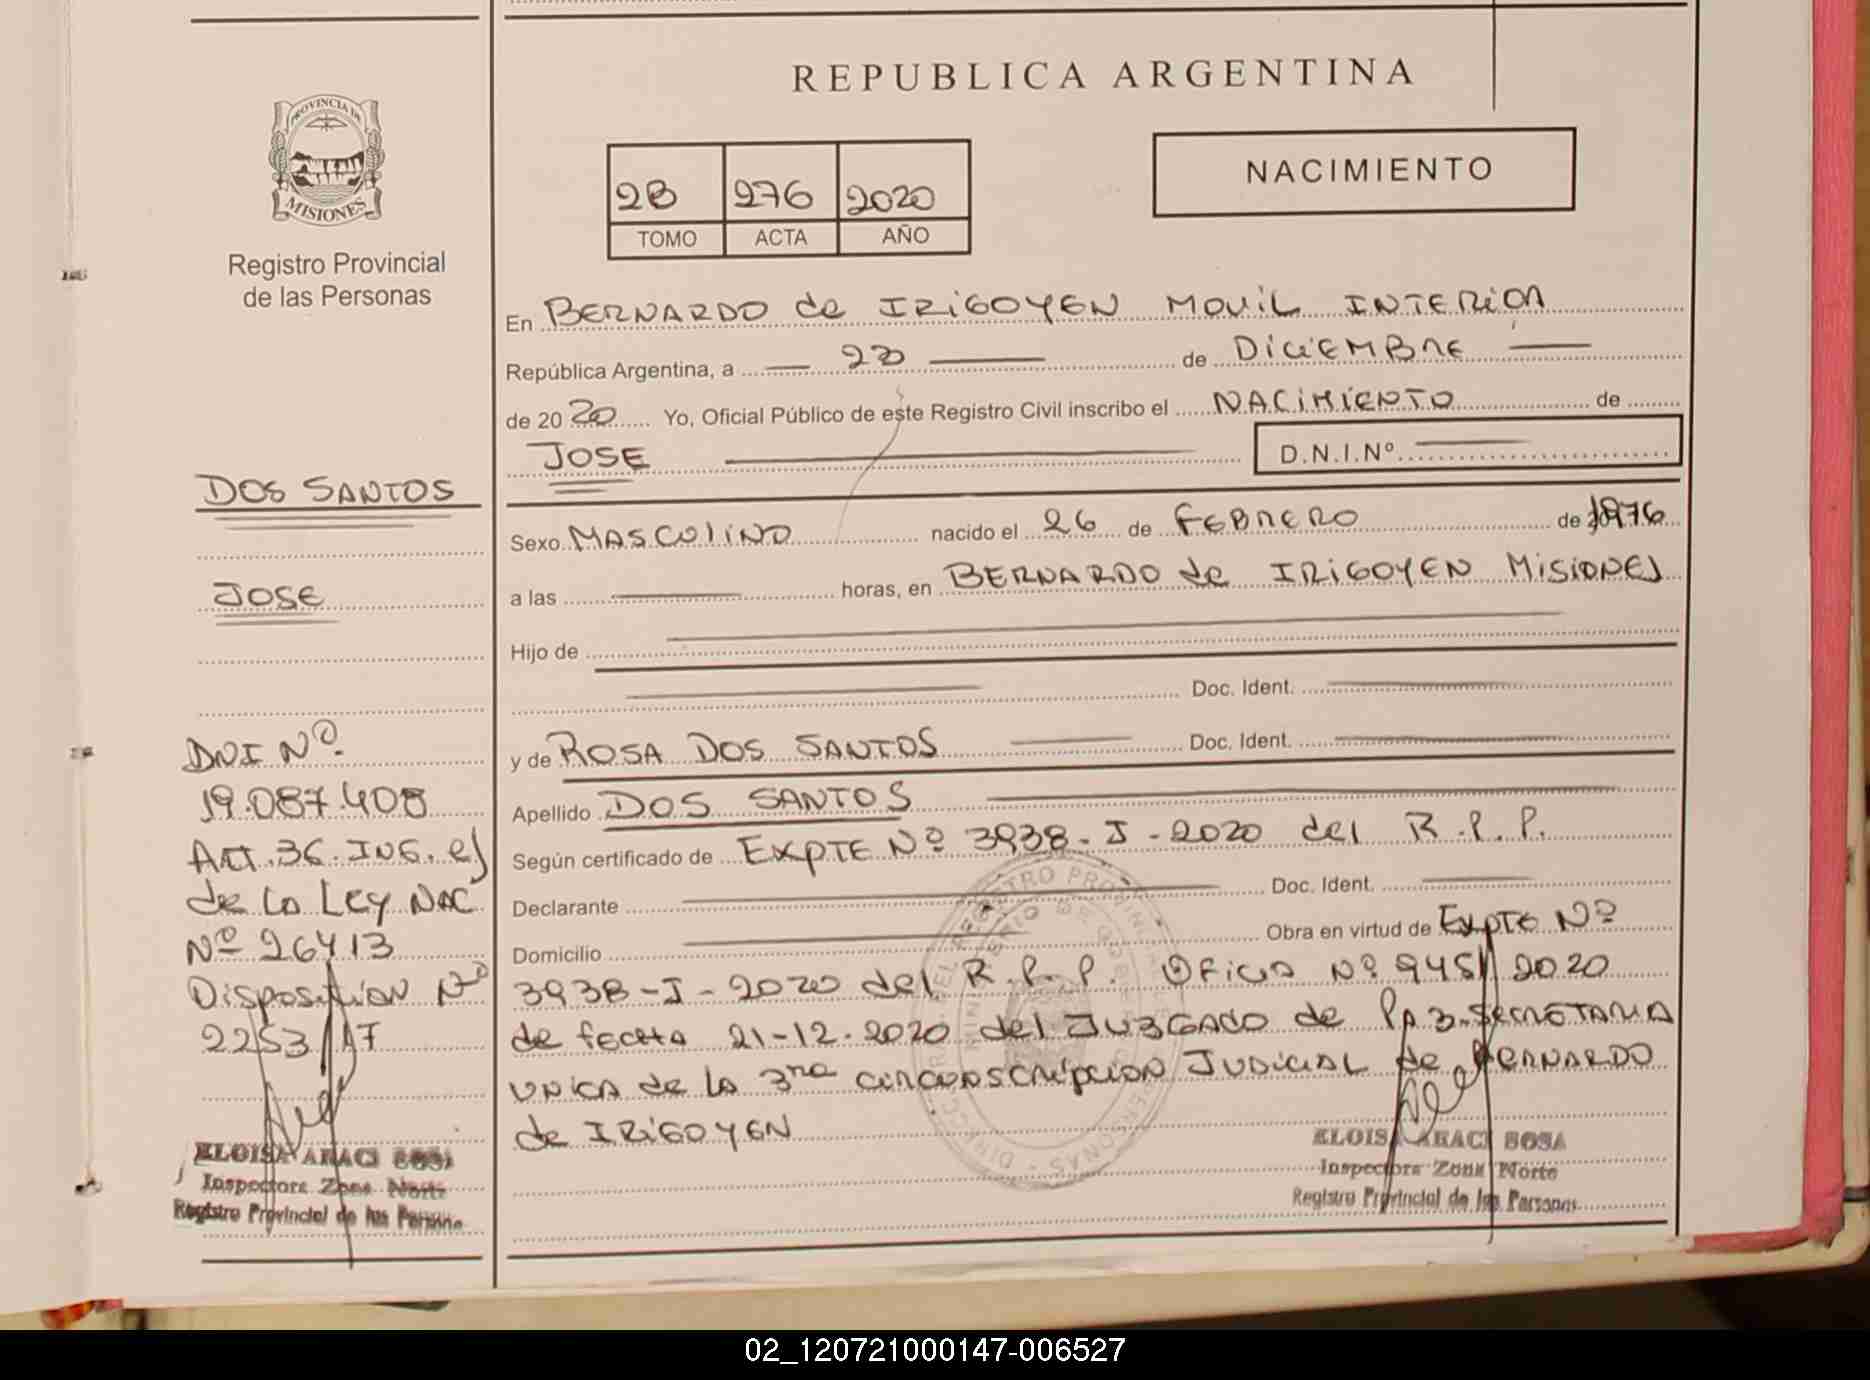 REPUBLICA ARGENTINA
PROVINCIA DE
MISIONES
Registro Provincial
de las Personas
2B 276 2020
TOMO ACTA AÑO
NACIMIENTO
DOS SANTOS
JOSE
DNI Nº
19.087.408
Art.36.INS.e)
de la Ley NAC
Nº 26413
Disposición Nº
2253/17
ELOISA ARACI SOSA
Inspectora Zona Norte
Registro Provincial de las Personas
En BERNARDO de IRIGOYEN MOVIL INTERIOR
República Argentina, a — 23 — de DICIEMBRE —
de 20 20 Yo, Oficial Público de este Registro Civil inscribo el NACIMIENTO de
JOSE — D.N.I.Nº —
Sexo MASCULINO nacido el 26 de FEBRERO de 1976
a las — horas, en BERNARDO de IRIGOYEN MISIONES
Hijo de —
— Doc. Ident. —
y de ROSA DOS SANTOS — Doc. Ident. —
Apellido DOS SANTOS —
Según certificado de EXPTE Nº 3938-J-2020 del R.P.P.
Declarante — Doc. Ident. —
Domicilio — Obra en virtud de EXPTE Nº
3938-J-2020 del R.P.P. OFICIO Nº 945/2020
de fecha 21-12-2020 del JUZGADO de PAZ.SECRETARIA
UNICA de la 3ra CIRCUNSCRIPCION JUDICIAL de BERNARDO
de IRIGOYEN
ELOISA ARACI SOSA
Inspectora Zona Norte
Registro Provincial de las Personas
02_120721000147-006527